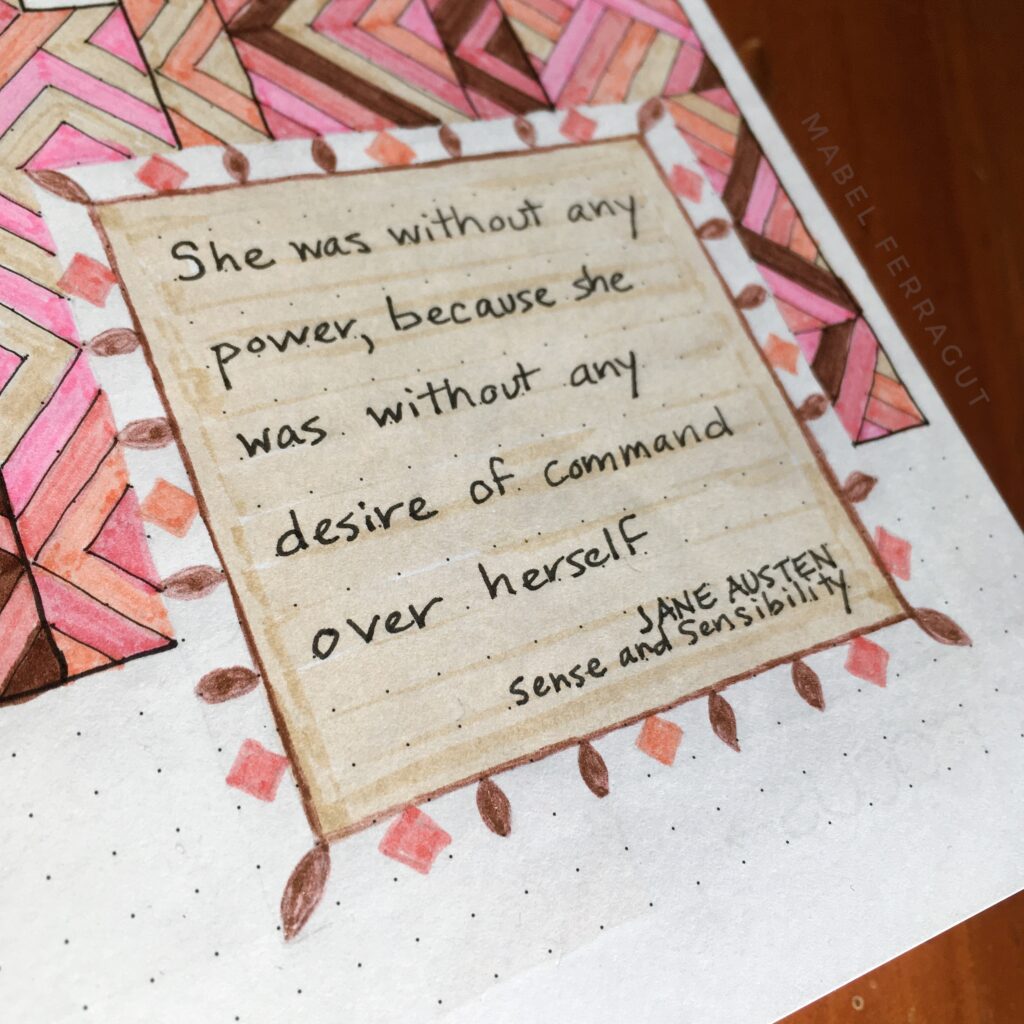 She was without any
power, because she
was without any
desire of command
over herself
JANE AUSTEN
Sense and Sensibility
MABEL FERRAGUT